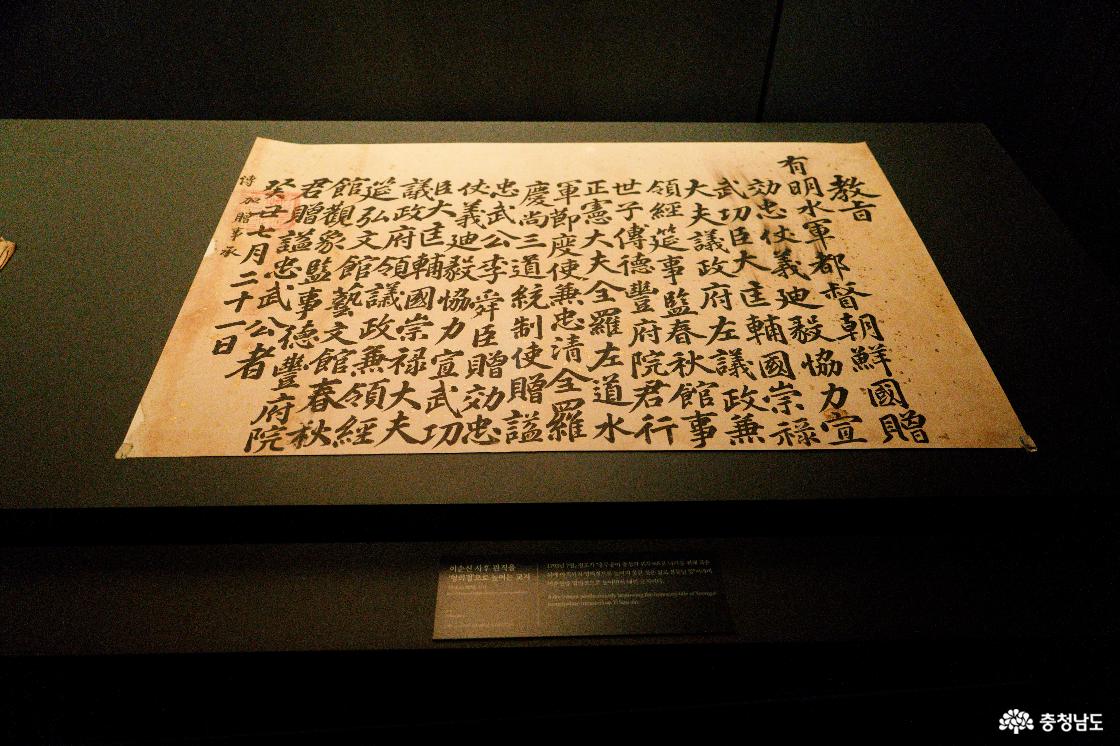 教旨
有明水軍都督朝鮮國贈
効忠仗義迪毅協力宣
武功臣大匡輔國崇祿
大夫議政府左議政兼
領經筵事監春秋館事
世子傅德豐府院君行
正憲大夫全羅左道水
軍節度使兼忠淸全羅
慶尙三道統制使贈謚
忠武公李舜臣贈効忠
仗義迪毅協力宣武功
臣大匡輔國崇祿大夫
議政府領議政兼領經
筵弘文館藝文館春秋
館觀象監事德豐府院
君贈謚忠武公者
癸丑七月二十一日
加贈事承
이순신 사후 관직을
'영의정'으로 높이는 교지
충청남도